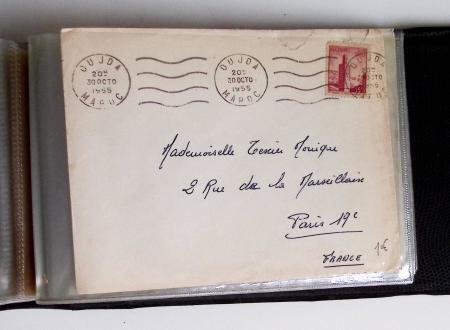 OUJDA
20H
30 OCTO
1955
MAROC
OUJDA
20H
30 OCTO
1955
MAROC
Mademoiselle Texier Monique
2 Rue de la Marseillaise
Paris 19e
FRANCE
1€